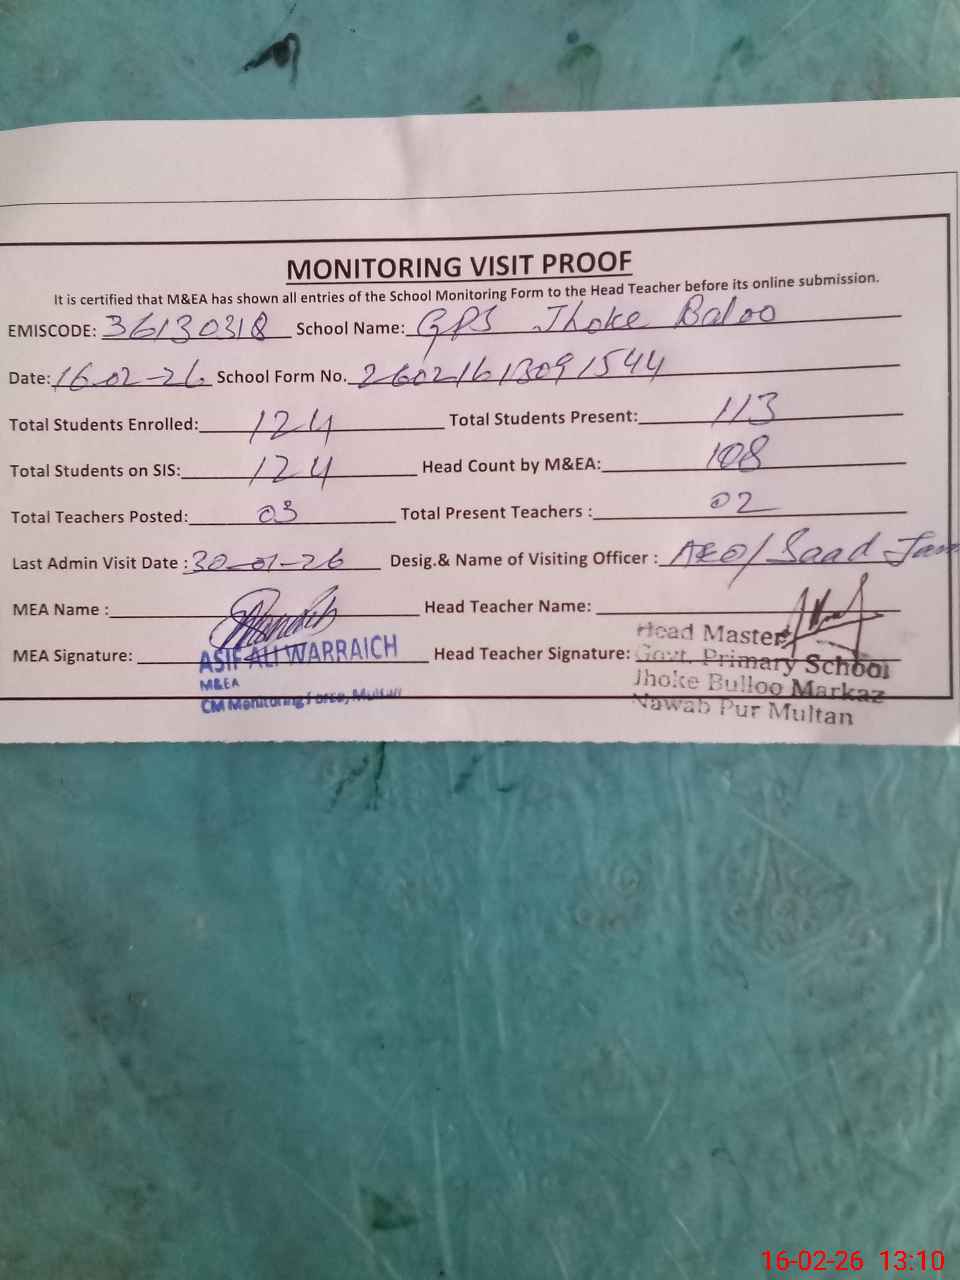 MONITORING VISIT PROOF
It is certified that M&EA has shown all entries of the School Monitoring Form to the Head Teacher before its online submission.
EMISCODE: 36130318 School Name: GPS Jhoke Baloo
Date: 16-02-26 School Form No. 26021613091544
Total Students Enrolled: 124 Total Students Present: 113
Total Students on SIS: 124 Head Count by M&EA: 108
Total Teachers Posted: 03 Total Present Teachers : 02
Last Admin Visit Date : 30-01-26 Desig.& Name of Visiting Officer : AEO/ Saad
MEA Name : Head Teacher Name:
MEA Signature: Head Teacher Signature:
ASIF ALI WARRAICH
M&EA
CM Monitoring Force, Multan
Head Master
Govt. Primary School
Jhoke Bulloo Markaz
Nawab Pur Multan
16-02-26 13:10